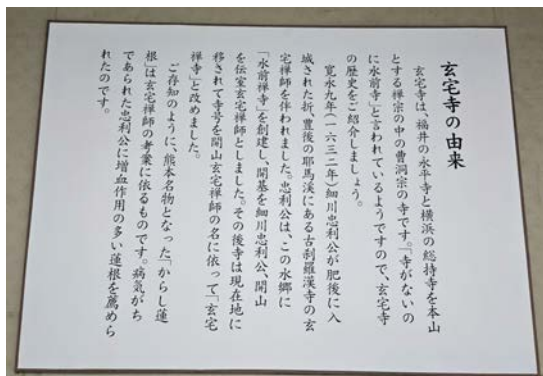 玄宅寺の由来
玄宅寺は、福井の永平寺と横浜の総持寺を本山
とする禅宗の中の曹洞宗の寺です。「寺がないの
に水前寺」と言われているようですので、玄宅寺
の歴史をご紹介しましょう。
寛永九年(一六三二年)細川忠利公が肥後に入
城された折、豊後の耶馬溪にある古刹羅漢寺の玄
宅禅師を伴われました。忠利公は、この水郷に
「水前禅寺」を創建し、開基を細川忠利公、開山
を伝室玄宅禅師としました。その後寺は現在地に
移されて寺号を開山玄宅禅師の名に依って「玄宅
禅寺」と改めました。
ご存知のように、熊本名物となった「からし蓮
根」は玄宅禅師の考案に依るものです。病気がち
であられた忠利公に増血作用の多い蓮根を薦めら
れたのです。